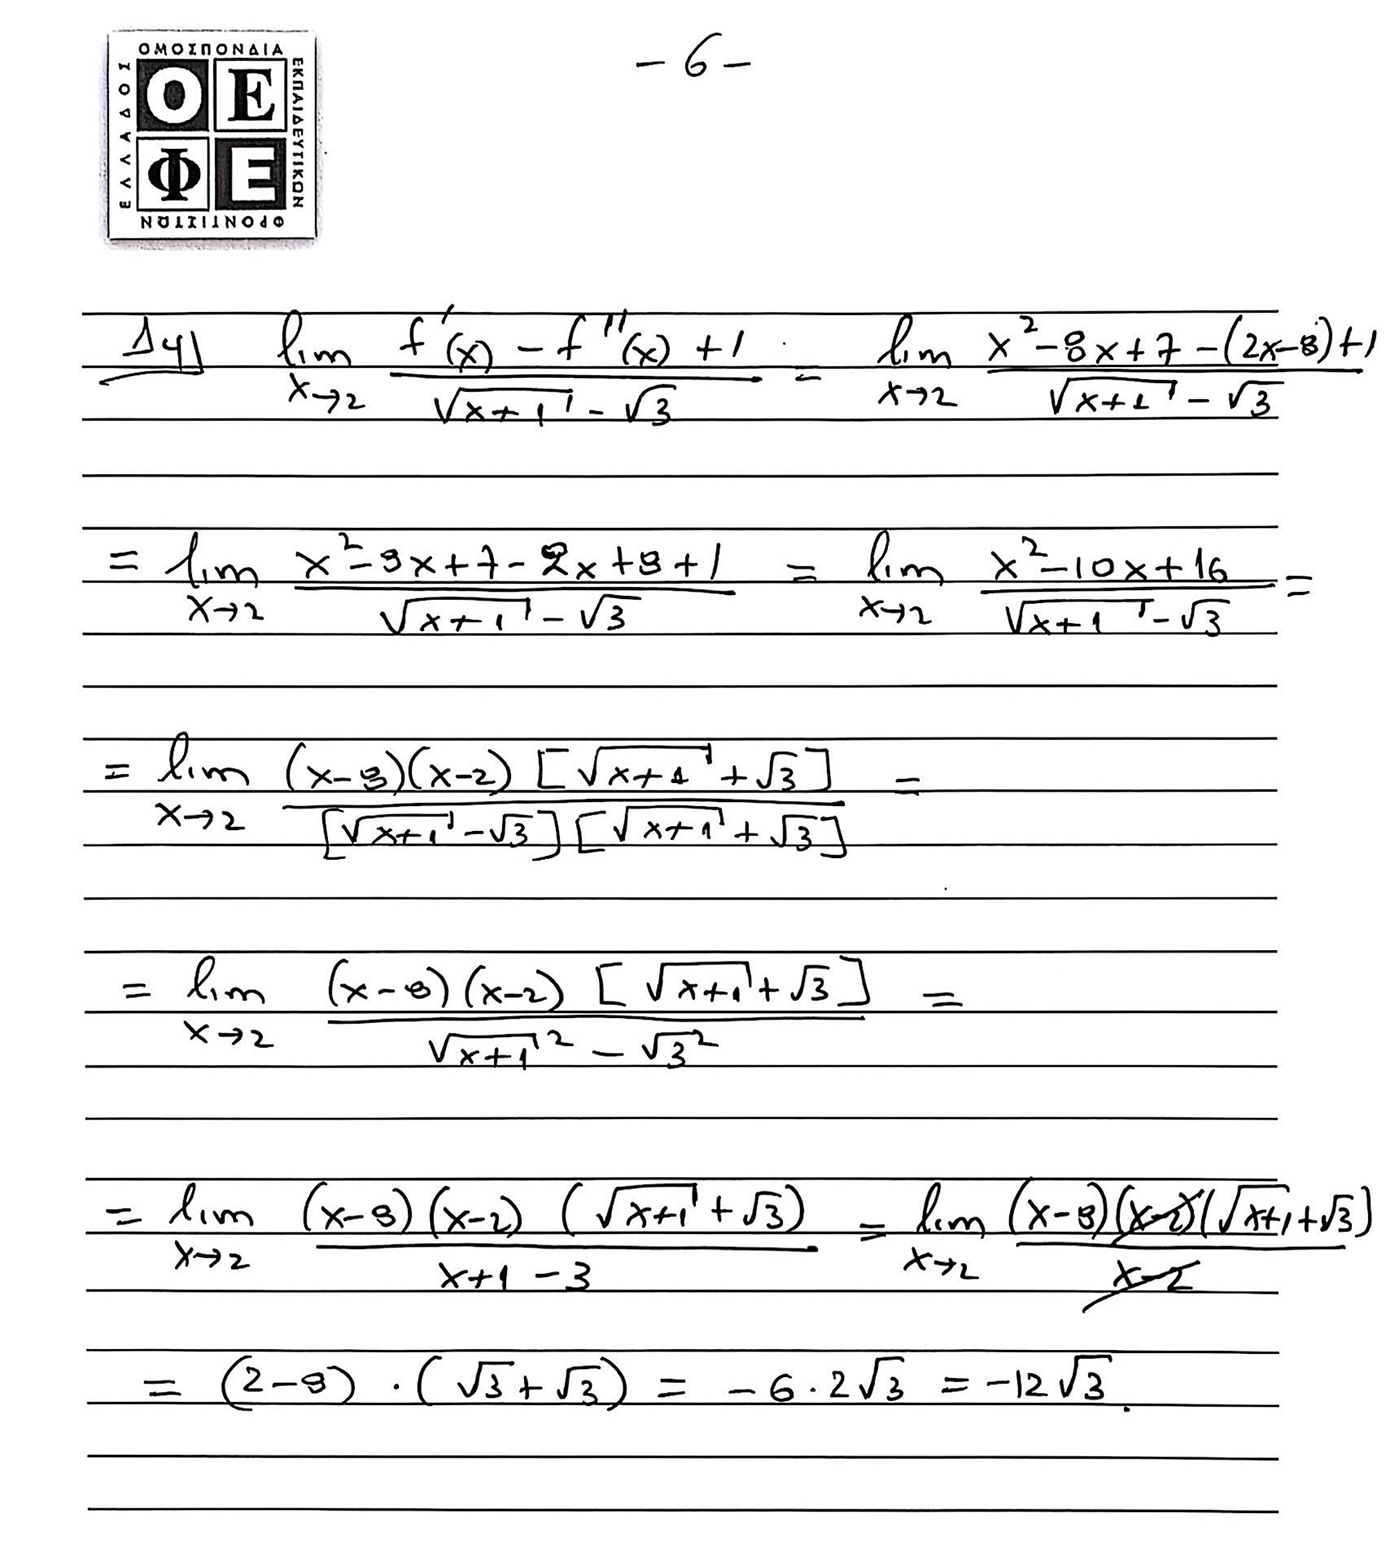 - 6 -
ΟΜΟΣΠΟΝΔΙΑ
ΕΚΠΑΙΔΕΥΤΙΚΩΝ
ΦΡΟΝΤΙΣΤΩΝ
ΕΛΛΑΔΟΣ
ΟΕ
ΦΕ
Δ4) lim x→2 (f'(x) - f''(x) + 1) / (√(x+1) - √3) = lim x→2 (x² - 8x + 7 - (2x - 8) + 1) / (√(x+1) - √3)
= lim x→2 (x² - 8x + 7 - 2x + 8 + 1) / (√(x+1) - √3) = lim x→2 (x² - 10x + 16) / (√(x+1) - √3) =
= lim x→2 (x-8)(x-2) [√(x+1) + √3] / [√(x+1) - √3] [√(x+1) + √3] =
= lim x→2 (x-8)(x-2) [√(x+1) + √3] / (√(x+1)² - √3²) =
= lim x→2 (x-8)(x-2) (√(x+1) + √3) / (x+1-3) = lim x→2 (x-8)(x-2)(√(x+1) + √3) / (x-2)
= (2-8) · (√3 + √3) = -6 · 2√3 = -12√3.